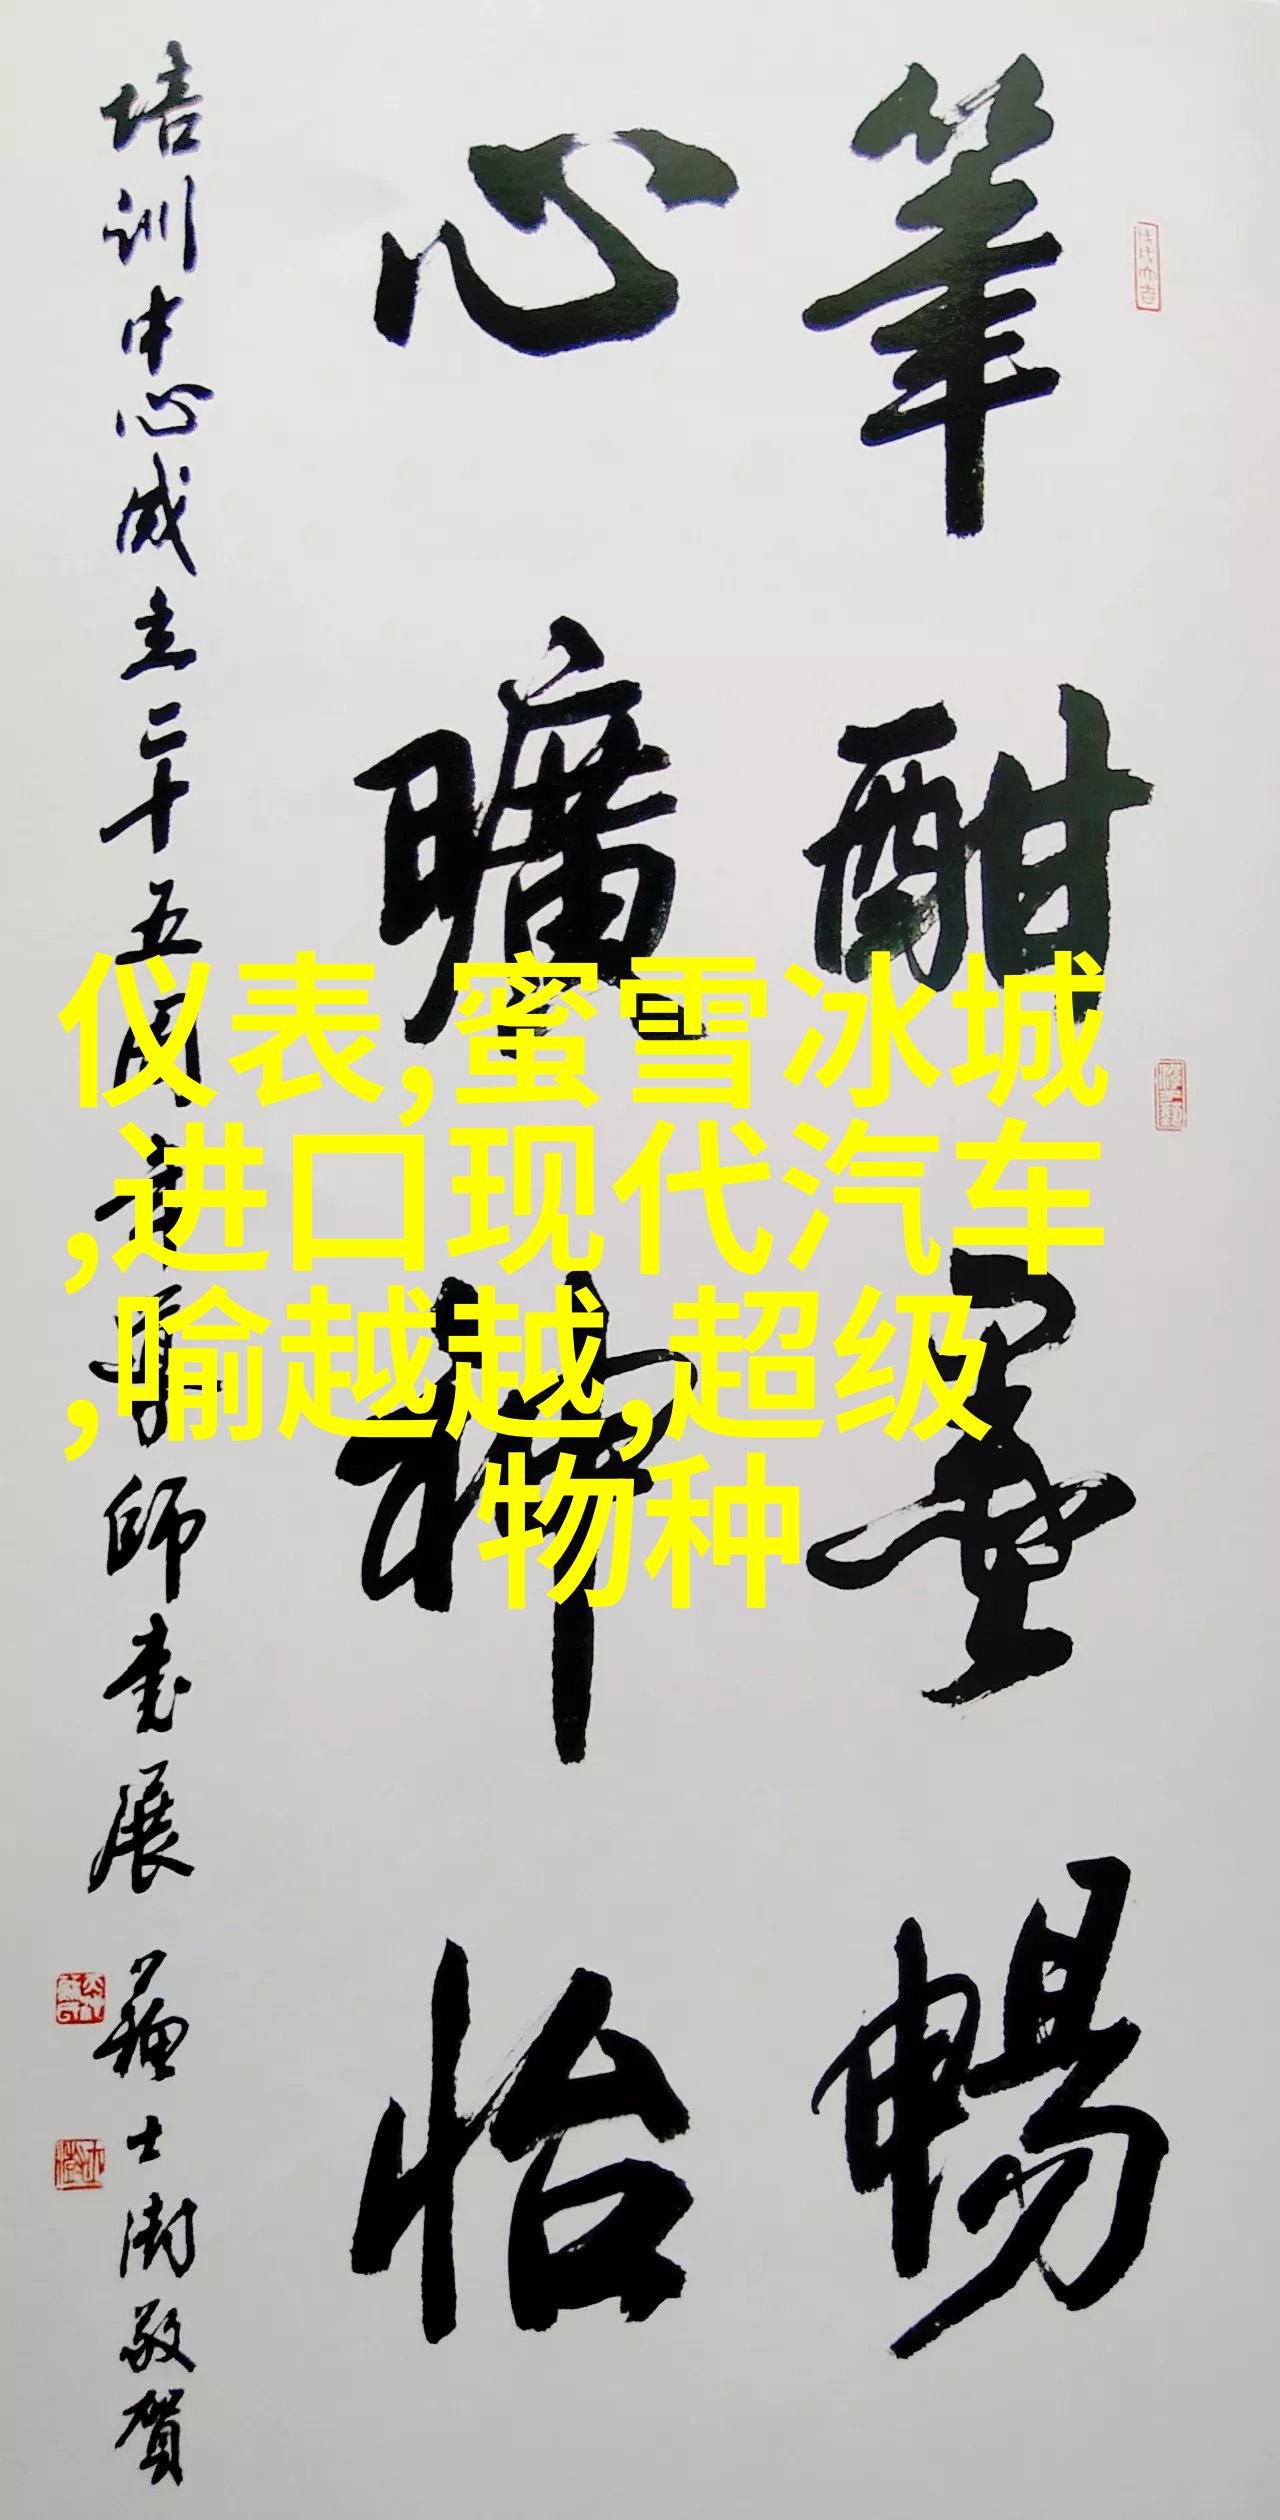 筆酣墨暢
心曠神怡
培训中心成立二十五周年華師書展 蘇士澍敬賀
仪表,蜜雪冰城
,进口现代汽车
,喻越越,超级
物种